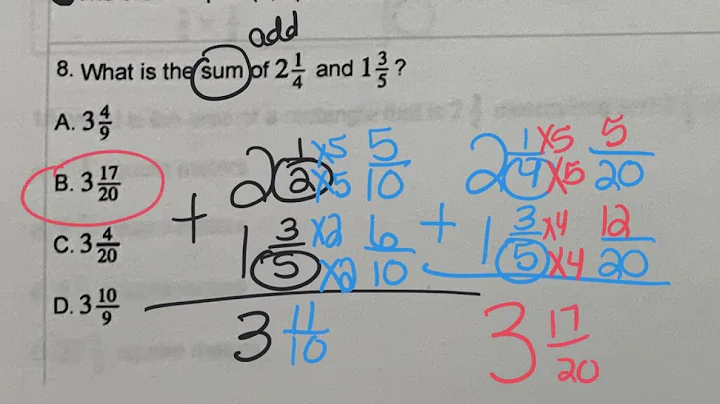 add
8. What is the sum of 2 1/4 and 1 3/5 ?
A. 3 4/9
B. 3 17/20
C. 3 4/20
D. 3 10/9
2 1/2 ×5 ×5 5/10
+ 1 3/5 ×2 ×2 6/10
3 11/10
2 1/4 ×5 ×5 5/20
+ 1 3/5 ×4 ×4 12/20
3 17/20